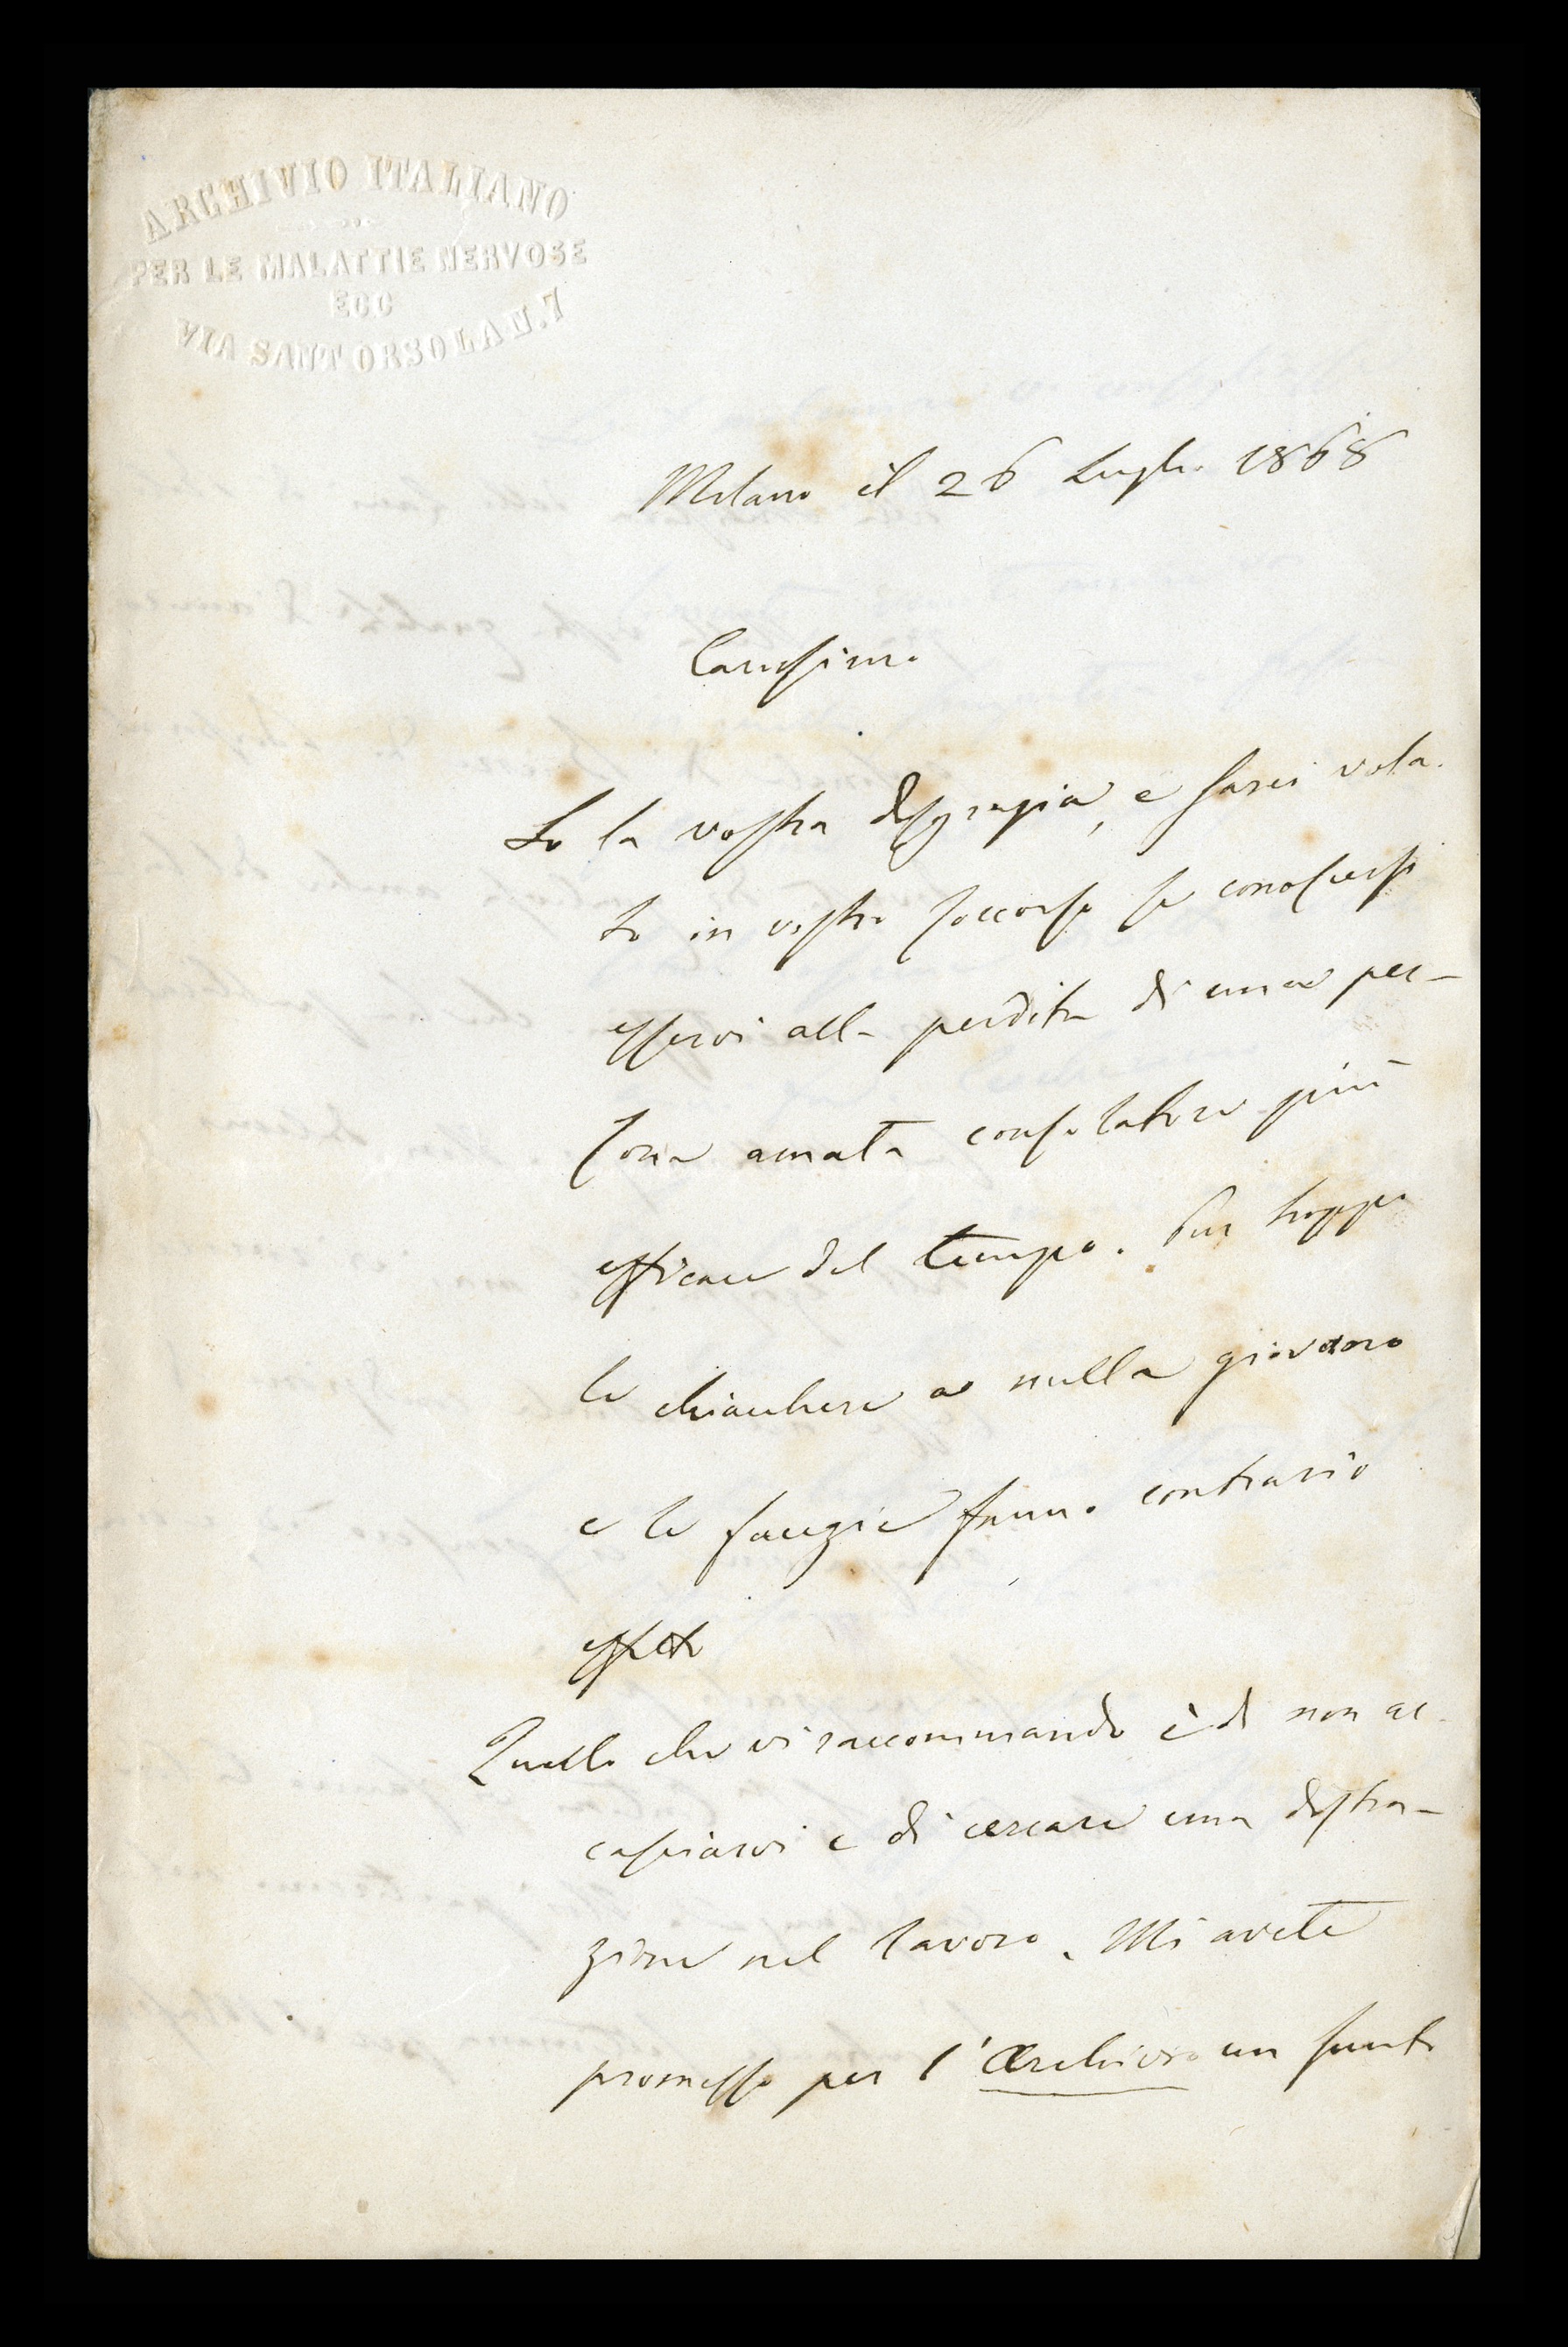 ARCHIVIO ITALIANO
PER LE MALATTIE NERVOSE
ECC
VIA SANT ORSOLA N. 7
Milano il 26 Luglio 1868
Carissimo
So la vostra disgrazia, e sarei vola-
to in vostro soccorso se conoscessi
esservi alla perdita di una per-
sona amata consolatore più
efficace del tempo. Pur troppo
le chiacchere a nulla giovano
e le facezie fanno contrario
effetto
Quello che vi raccommando è di non ac-
casciarvi e di cercare una distra-
zione nel lavoro. Mi avete
promesso per l'Archivio un sunto